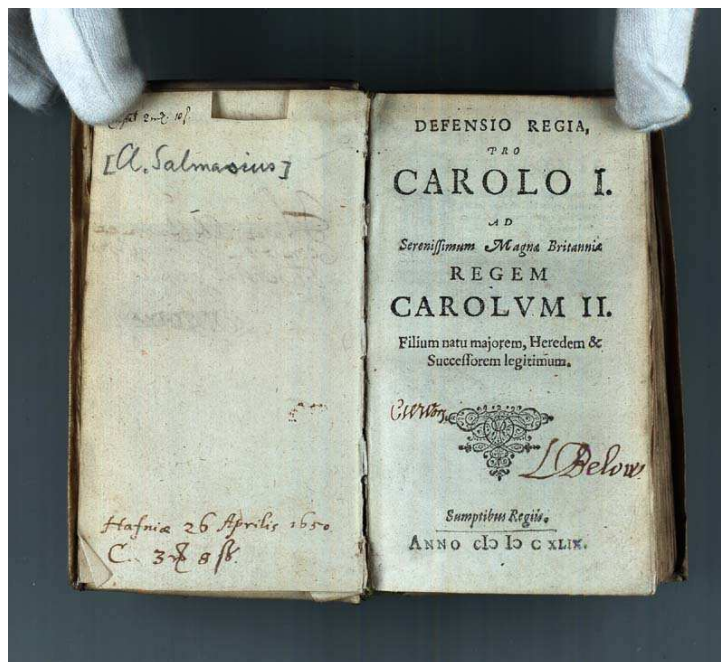 [Cl. Salmasius]
Hafniæ 26 Aprilis 1650
C. 3 8 ß.
DEFENSIO REGIA,
PRO
CAROLO I.
AD
Sereniſſimum Magnæ Britanniæ
REGEM
CAROLVM II.
Filium natu majorem, Heredem &
Succeſſorem legitimum.
L Below
Sumptibus Regiis.
ANNO cIↄ Iↄ C XLIX.